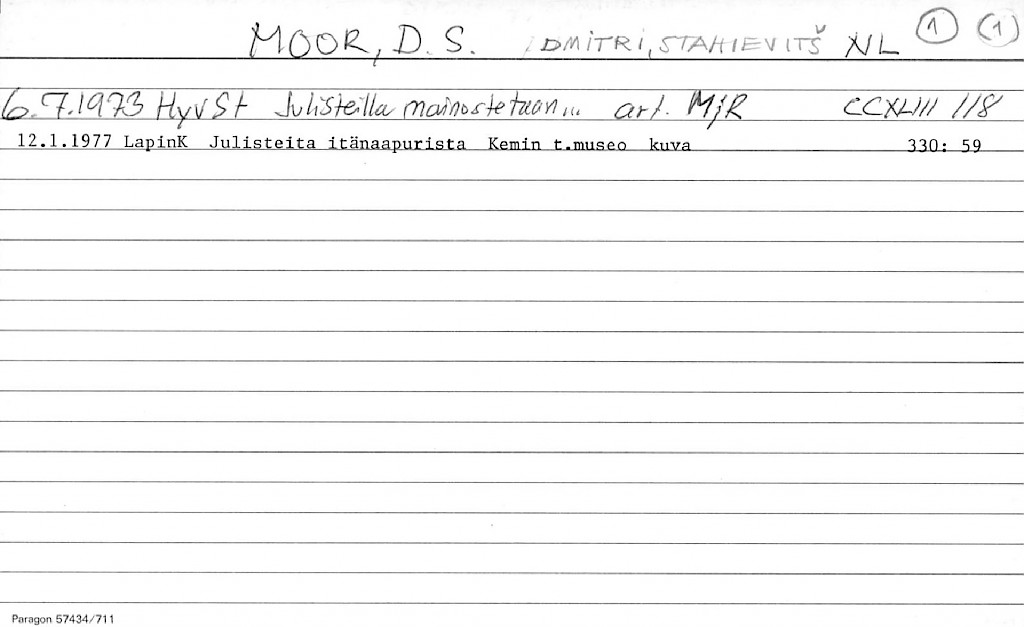 MOOR, D. S. DMITRI, STAHIEVITŠ NL 1 (1)
6.7.1973 HyvSt Julisteilla mainostetaan... art. MjR CCXLIII 118
12.1.1977 LapinK Julisteita itänaapurista Kemin t.museo kuva 330: 59
Paragon 57434/711